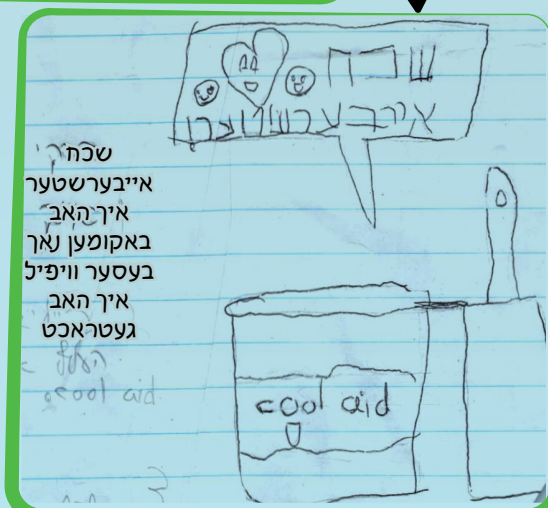 שכח
אייבערשטער
שכח
אייבערשטער
איך האב
באקומען נאך
בעסער וויפיל
איך האב
געטראכט
cool aid
cool aid